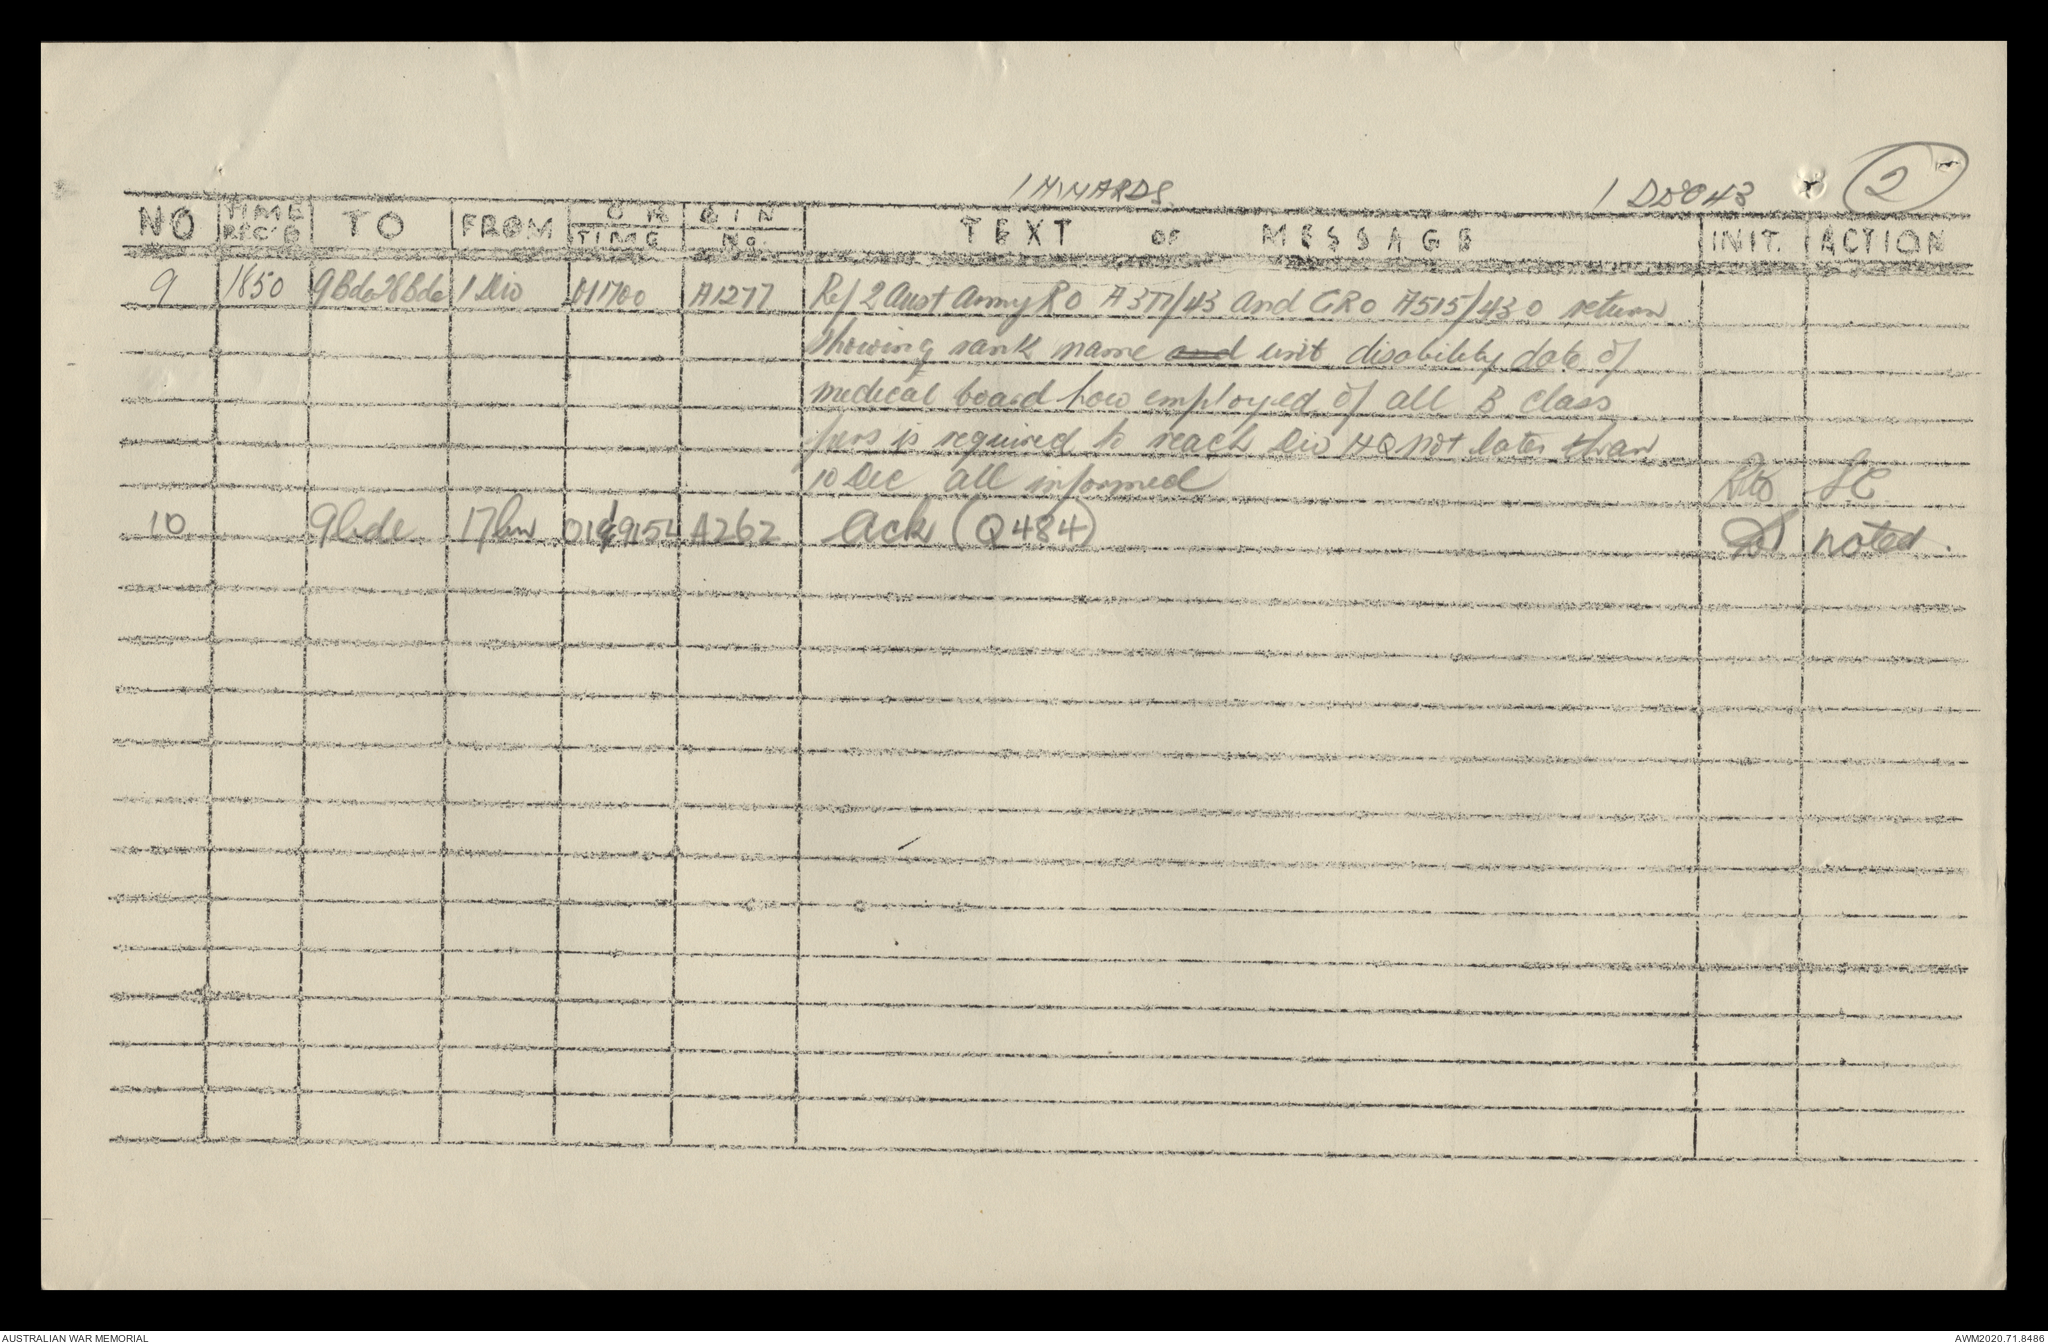 INWARDS. 1 DEC 43 2
NO TIME REC'D TO FROM ORIGIN TIME No. TEXT OF MESSAGE INIT. ACTION
9 1850 9Bde 28Bde 1 Div 011700 A1277 Ref 2 Aust Army RO A377/43 and GRO A515/43 o return
showing rank name and unit disability date of
medical board how employed of all B class
pers is required to reach Div HQ not later than
10 Dec all informed SC
10 9bde 17bn A262 Ack (Q484) noted.
AUSTRALIAN WAR MEMORIAL AWM2020.71.8486